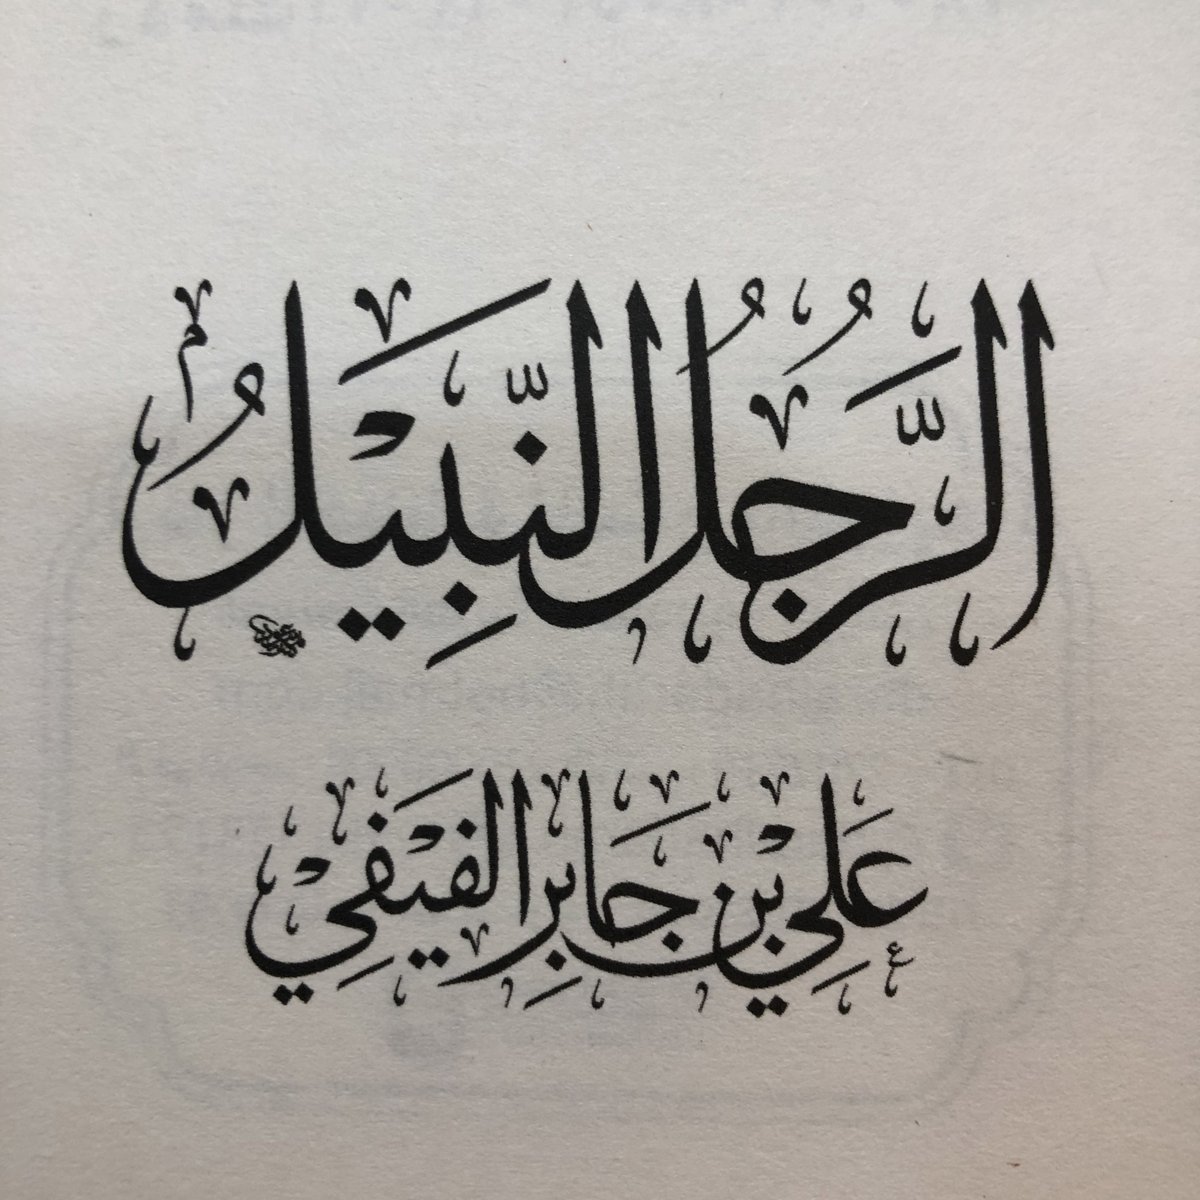 الرَّجُلُ النَّبِيْلُ
عَلِي بْن جَابِر الفَيْفِي